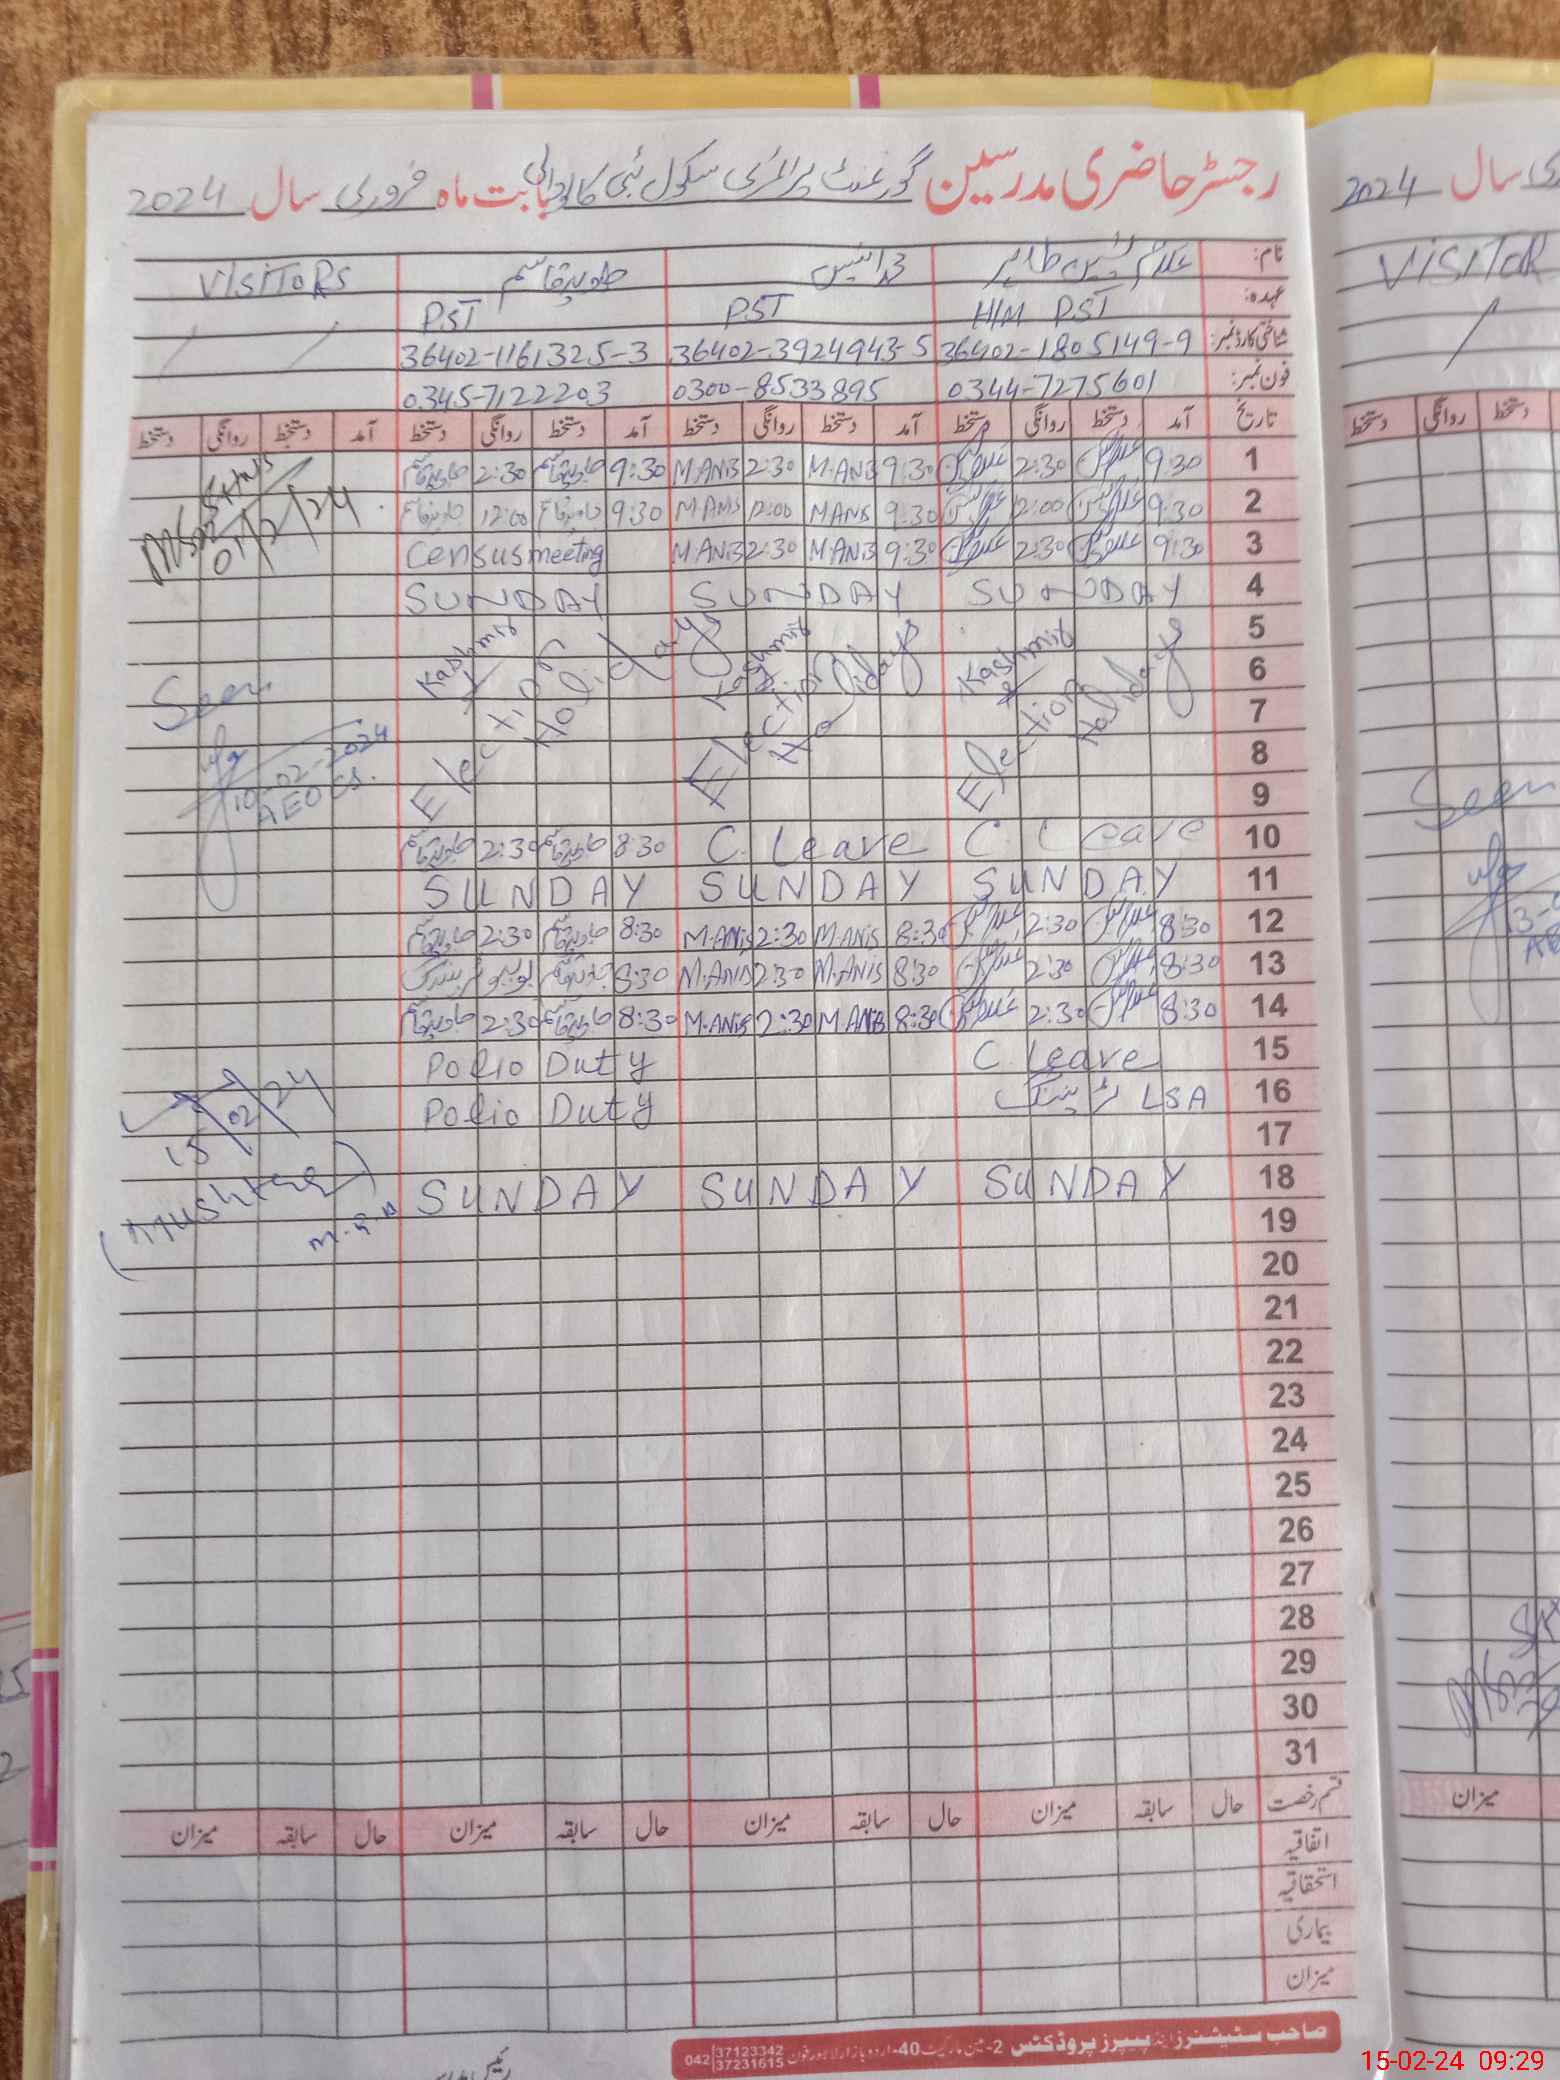 رجسٹر حاضری مدرسین گورنمنٹ پرائمری سکول بابت ماہ فروری سال 2024
نام: محمد انیس جاوید قاسم VISITORS
عہدہ: H/M PST PST PST
شناختی کارڈ نمبر: 36402-1805149-9 36402-3924943-5 36402-1161325-3
فون نمبر: 0344-7275601 0300-8533895 0345-7122203
تاریخ آمد دستخط روانگی دستخط آمد دستخط روانگی دستخط آمد دستخط روانگی دستخط آمد دستخط روانگی دستخط
1 9:30 2:30 9:30 M.ANIS 2:30 M.ANIS 9:30 2:30
2 9:30 12:00 9:30 M.ANIS 12:00 M.ANIS 9:30 12:00
3 9:30 2:30 9:30 M.ANIS 2:30 M.ANIS Census meeting
01/2/24
4 SUNDAY SUNDAY SUNDAY
5 Kashmir Kashmir Kashmir
6
7 Election Holidays Election Holidays Election Holidays
8
9
Seen
10-02-2024
AEO
10 C. Leave C. Leave 8:30 2:30
11 SUNDAY SUNDAY SUNDAY
12 8:30 2:30 8:30 M.ANIS 2:30 M.ANIS 8:30 2:30
13 8:30 2:30 8:30 M.ANIS 2:30 M.ANIS 8:30
14 8:30 2:30 8:30 M.ANIS 2:30 M.ANIS 8:30 2:30
15 C. Leave Polio Duty
16 LSA ٹریننگ Polio Duty
15/02/24
17
18 SUNDAY SUNDAY SUNDAY
19
20
21
22
23
24
25
26
27
28
29
30
31
قسم رخصت حال سابقہ میزان حال سابقہ میزان حال سابقہ میزان حال سابقہ میزان
اتفاقیہ
استحقاقیہ
بیماری
میزان
صاحب سٹیشنرز اینڈ پیپرز پروڈکٹس 2-مین مارکیٹ 40-اردو بازار لاہور فون 042 37123342 37231615
2024 سال
VISITOR
دستخط روانگی دستخط
Seen
میزان
15-02-24 09:29